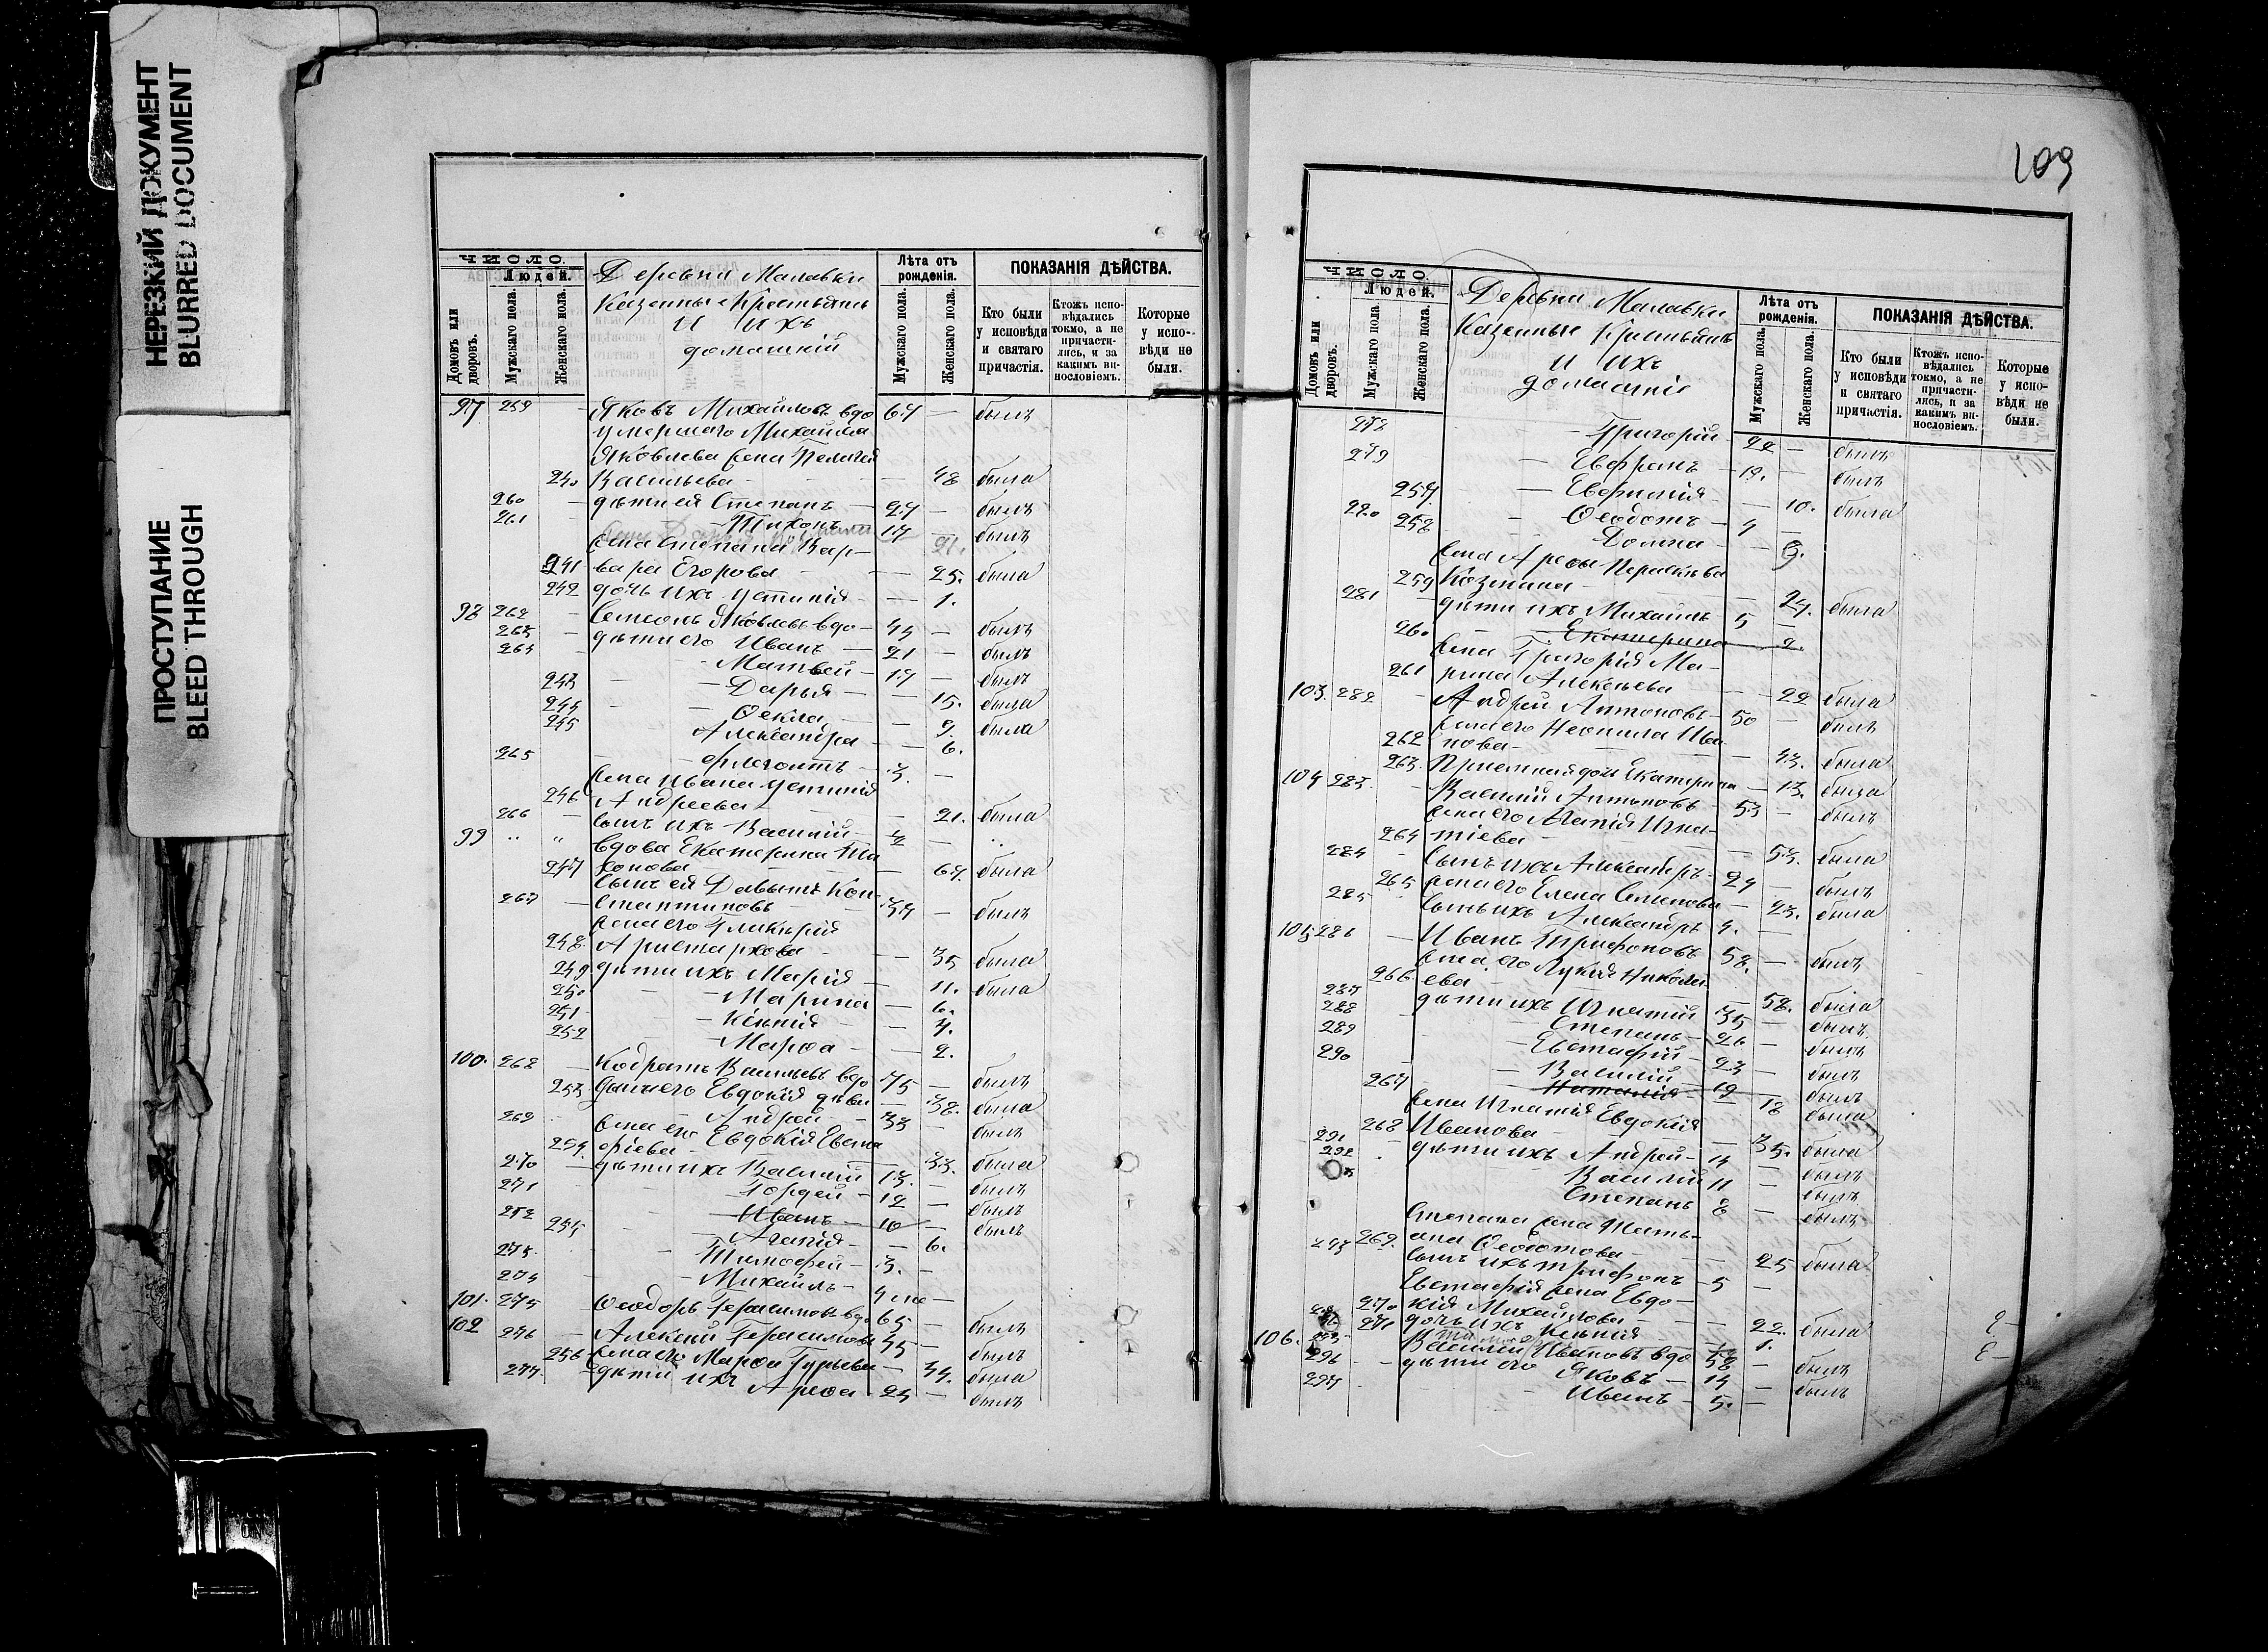 НЕРЕЗКИЙ ДОКУМЕНТ
BLURRED DOCUMENT
ПРОСТУПАНИЕ
BLEED THROUGH
ЧИСЛО.
Людей.
Домовъ или дворовъ.
Мужскаго пола.
Женскаго пола.
Деревни Малавки
Казенные Крестьяне
и ихъ
домашнiй
Лѣта отъ рожденія.
Мужскаго пола.
Женскаго пола.
ПОКАЗАНІЯ ДѢЙСТВА.
Кто были у исповѣди и святаго причастія.
Ктожъ исповѣдались токмо, а не причастились, и за какимъ винословіемъ.
Которые у исповѣди не были.
97 259 — Яковъ Михайловъ вдо 67 — былъ
умершаго Михайла
Яковлева жена Пелагея
240 Васильева — — 48 была
260 — дѣти ей Степанъ — 27 — былъ
261 — Тихонъ 17 — былъ
жена Степана Вар- 21.
241 вара Егорова — — 25. была
242 дочь ихъ Устинія — — 1.
98 262 — Семенъ Яковлевъ вдо — 44 — былъ
263 — дѣти его Иванъ — 21 — былъ
264 — Матвей — 17 — былъ
243 — Дарья — — 15. была
244 — Ѳекла — — 9. была
245 — Александра — — 6.
265 — Флегонтъ — 3. —
жена Ивана Устинія
246 Андреева — — 21. была
266 — сынъ ихъ Василій — —
99 " " вдова Екатерина
247 — — 67. была
сынъ ей Давыдъ Кон-
267 — стантиновъ — 37 — былъ
жена его Гликерія
248. Аристархова — — 35 была
249 дѣти ихъ Марія — — 11. была
250 — Марина — — 6.
251 — Ксенія — — 4.
252 — Марѳа — — 2.
100. 268 — Кодратъ Васильевъ вдо 75 — былъ
253 Дочь его Евдокія дѣви — 38. была
269 — Андрей — 33 — былъ
жена его Евдокія Евста
254 фіева — — 33. была
270 — дѣти ихъ Василій 13. — былъ
271 — Гордей — 12 — былъ
272 — Иванъ — 10 — былъ
255 — Агапія — — 6.
273 — Тимофей — 3. —
274 — Михаилъ —
101. 275 Ѳеодоръ Герасимовъ вдо 65 — былъ
102 276 — Алексей Герасимовъ 45 — былъ
256 жена его Марѳа Гурьева — 44. была
277. — дѣти ихъ Арѳа 24 — былъ
109
ЧИСЛО.
Людей.
Домовъ или дворовъ.
Мужскаго пола.
Женскаго пола.
Деревни Малавки
Казенные Крестьяне
и ихъ
домашніе
Лѣта отъ рожденія.
Мужскаго пола.
Женскаго пола.
ПОКАЗАНІЯ ДѢЙСТВА.
Кто были у исповѣди и святаго причастія.
Ктожъ исповѣдались токмо, а не причастились, и за какимъ винословіемъ.
Которые у исповѣди не были.
278 — Григорій 22 — былъ
279 — Евфремъ — 19. — былъ
257 — Евфимія — — 10. была
280 — Ѳеодотъ —
258 — Домна —
жена Арѳы Парасκева
259 Козмина — — 27. была
281 — дѣти ихъ Михаилъ 5 —
260 — Екатерина — 2.
жена Григорія Ма-
261 рина Алексѣева — — 22 была
103. 282 — Андрей Антоновъ — 50 — былъ
жена его Неонила Ива
262 нова — — 43. была
263. Приемная дочь Екатерина — 13. была
104 283. — Василій Антоновъ — 53 — былъ
жена его Агапія Игна-
264 тіева — — 53. была
284 — сынъ ихъ Александръ — 24 — былъ
265 жена его Елена Семенова — 23. была
285 — сынъ ихъ Александръ 4. —
105 286 — Иванъ Трифоновъ 58. — былъ
жена его Лукія Никола-
266. ева — — 58. была
287 дѣти ихъ Игнатій 35 — былъ
288 — Степанъ — 26 — былъ
289 — Евстафій — 23 — былъ
290 — Василій — 19 — былъ
267 — Наталія — — 18 была
жена Игнатія Евдокія
268 Иванова — — 35. была
291 — дѣти ихъ Андрей — 14 — былъ
292 Василій 11 — былъ
Степанъ 8 — былъ
Степана жена Татья-
269. ана Ѳеодотова — — 25 была
сынъ ихъ Трифонъ — 5 —
Евстафія жена Евдо-
270 кія Михайлова — — 22. была
271 дочь ихъ Ксенія — — 1.
106. 295 Василій Ивановъ вдо 58 — былъ
296 — дѣти его Яковъ — 14 — былъ
297 Иванъ — 5. —